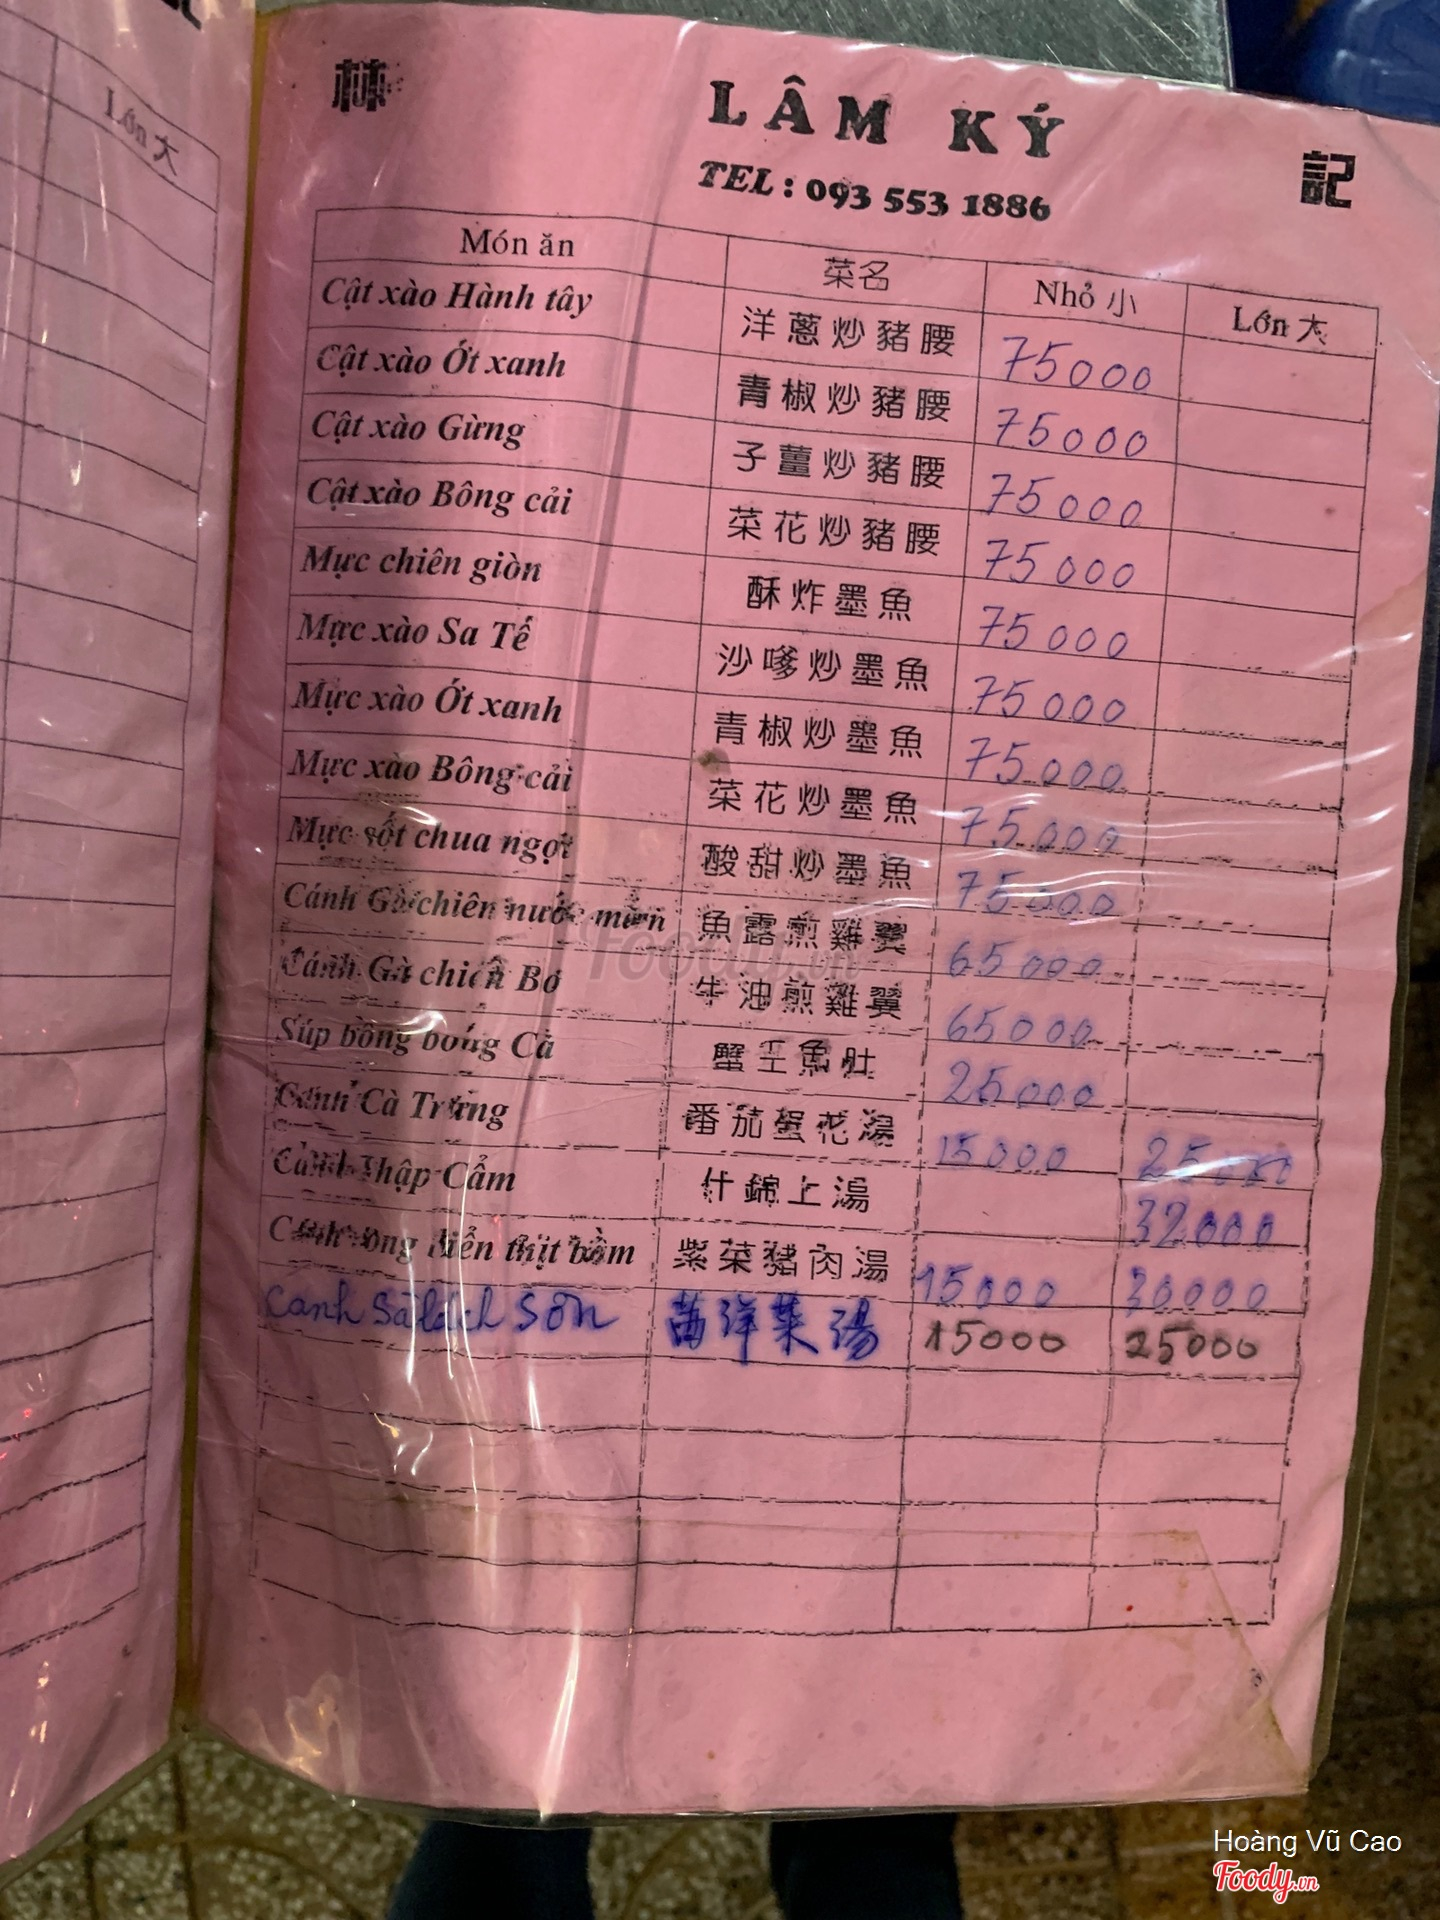 Lớn 大
林 LÂM KÝ 記
TEL : 093 553 1886
Món ăn 菜名 Nhỏ 小 Lớn 大
Cật xào Hành tây 洋蔥炒豬腰 75000
Cật xào Ớt xanh 青椒炒豬腰 75000
Cật xào Gừng 子薑炒豬腰 75000
Cật xào Bông cải 菜花炒豬腰 75000
Mực chiên giòn 酥炸墨魚 75000
Mực xào Sa Tế 沙嗲炒墨魚 75000
Mực xào Ớt xanh 青椒炒墨魚 75.000
Mực xào Bông cải 菜花炒墨魚 75.000
Mực sốt chua ngọt 酸甜炒墨魚 75000
Cánh Gà chiên nước mắm 魚露煎雞翼 65000
Cánh Gà chiên Bơ 牛油煎雞翼 65000
Súp bong bóng Cá 蟹王魚肚 25000
Canh Cà Trứng 番茄蛋花湯 15000 25000
Canh Thập Cẩm 什錦上湯 32000
Canh rong biển thịt bằm 紫菜豬肉湯 15000 30000
Canh Sà lách Son 西洋菜湯 15000 25000
Foody.vn
Hoàng Vũ Cao
Foody.vn